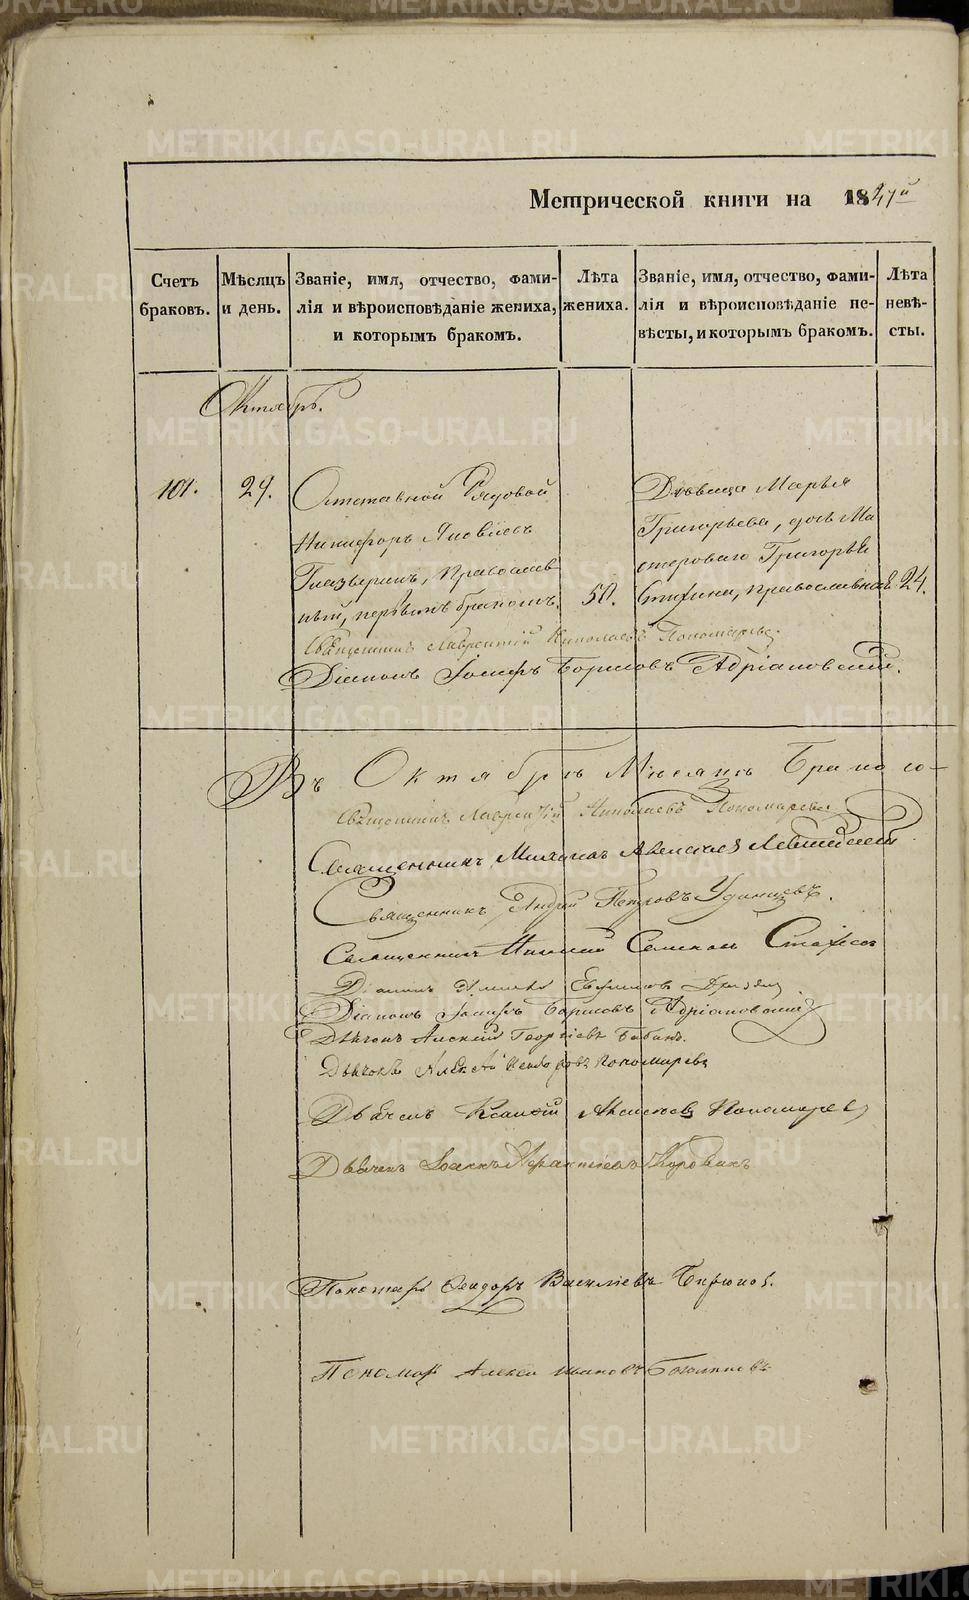 Метрической книги на 1847й
Счетъ браковъ.
Мѣсяцъ и день.
Званіе, имя, отчество, фамилія и вѣроисповѣданіе жениха, и которымъ бракомъ.
Лѣта жениха.
Званіе, имя, отчество, фамилія и вѣроисповѣданіе невѣсты, и которымъ бракомъ.
Лѣта невѣсты.
Октябрь.
101.
29.
Отставной Рядовой
Никифоръ Яковлевъ
Православ-
ный, первымъ бракомъ.
50.
Дѣвица Марья
Григорьева, дочь Ма
стероваго Григорья
православная
24.
Священникъ Лаврентій Николаевъ Пономаревъ.
Діаконъ Іосифъ Борисовъ Адріановскій.
Въ Октябрѣ Мѣсяцѣ Брако со-
Священникъ Лаврентій Николаевъ Пономаревъ
Священникъ Михаилъ Алексѣевъ
Священникъ Андрей Петровъ Удинцевъ.
Священникъ
Діаконъ
Діаконъ Іосифъ Борисовъ Адріановскій
Дьячекъ Алексѣй Георгіевъ Бабинъ.
Дьячекъ Алексѣй Пономаревъ
Дьячекъ Пономаревъ
Дьячекъ Іоаннъ Коровинъ
Пономарь Ѳеодоръ Васильевъ Бирюковъ.
Пономарь Алексѣй Ивановъ
METRIKI.GASO-URAL.RU